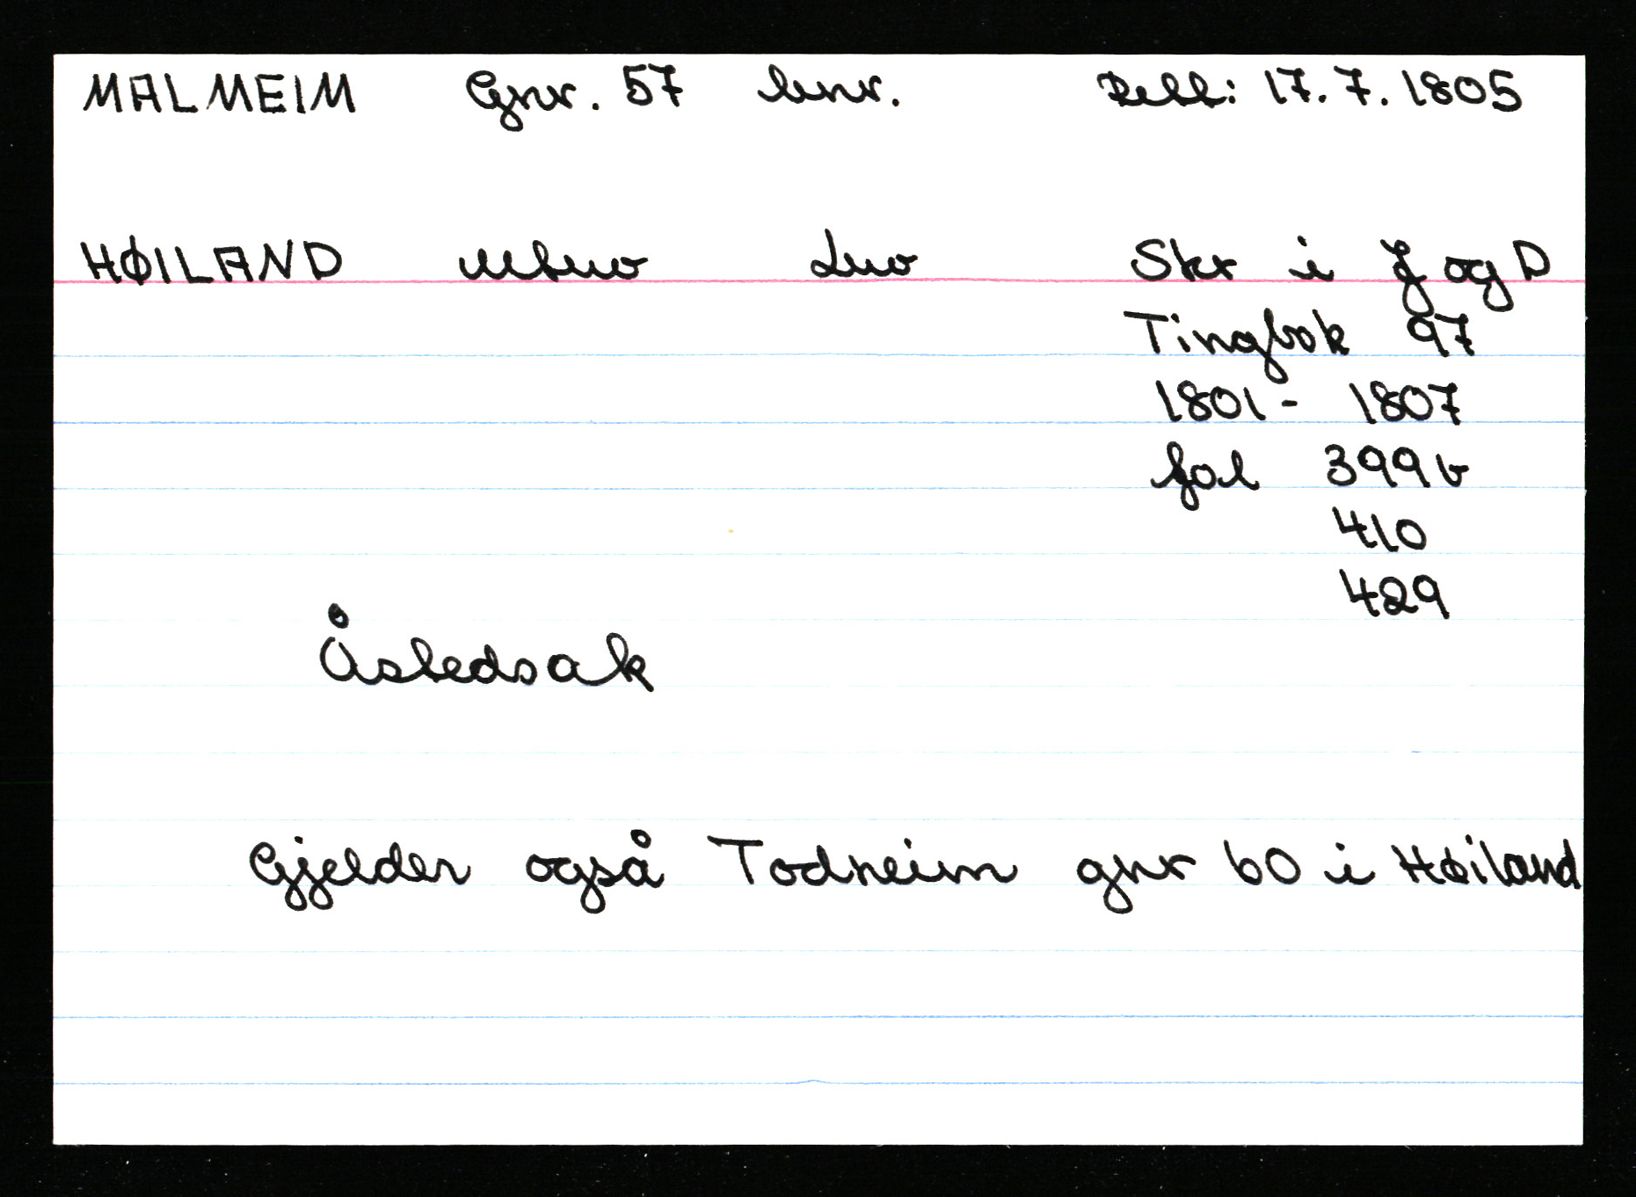 MALMEIM Gnr. 57 bnr. Rett: 17.7.1805
HØILAND Mtnr Lnr Skr i J og D
Tingbok 97
1801 - 1807
fol 399b
410
429
Åstedsak
Gjelder også Todneim gnr 60 i Høiland